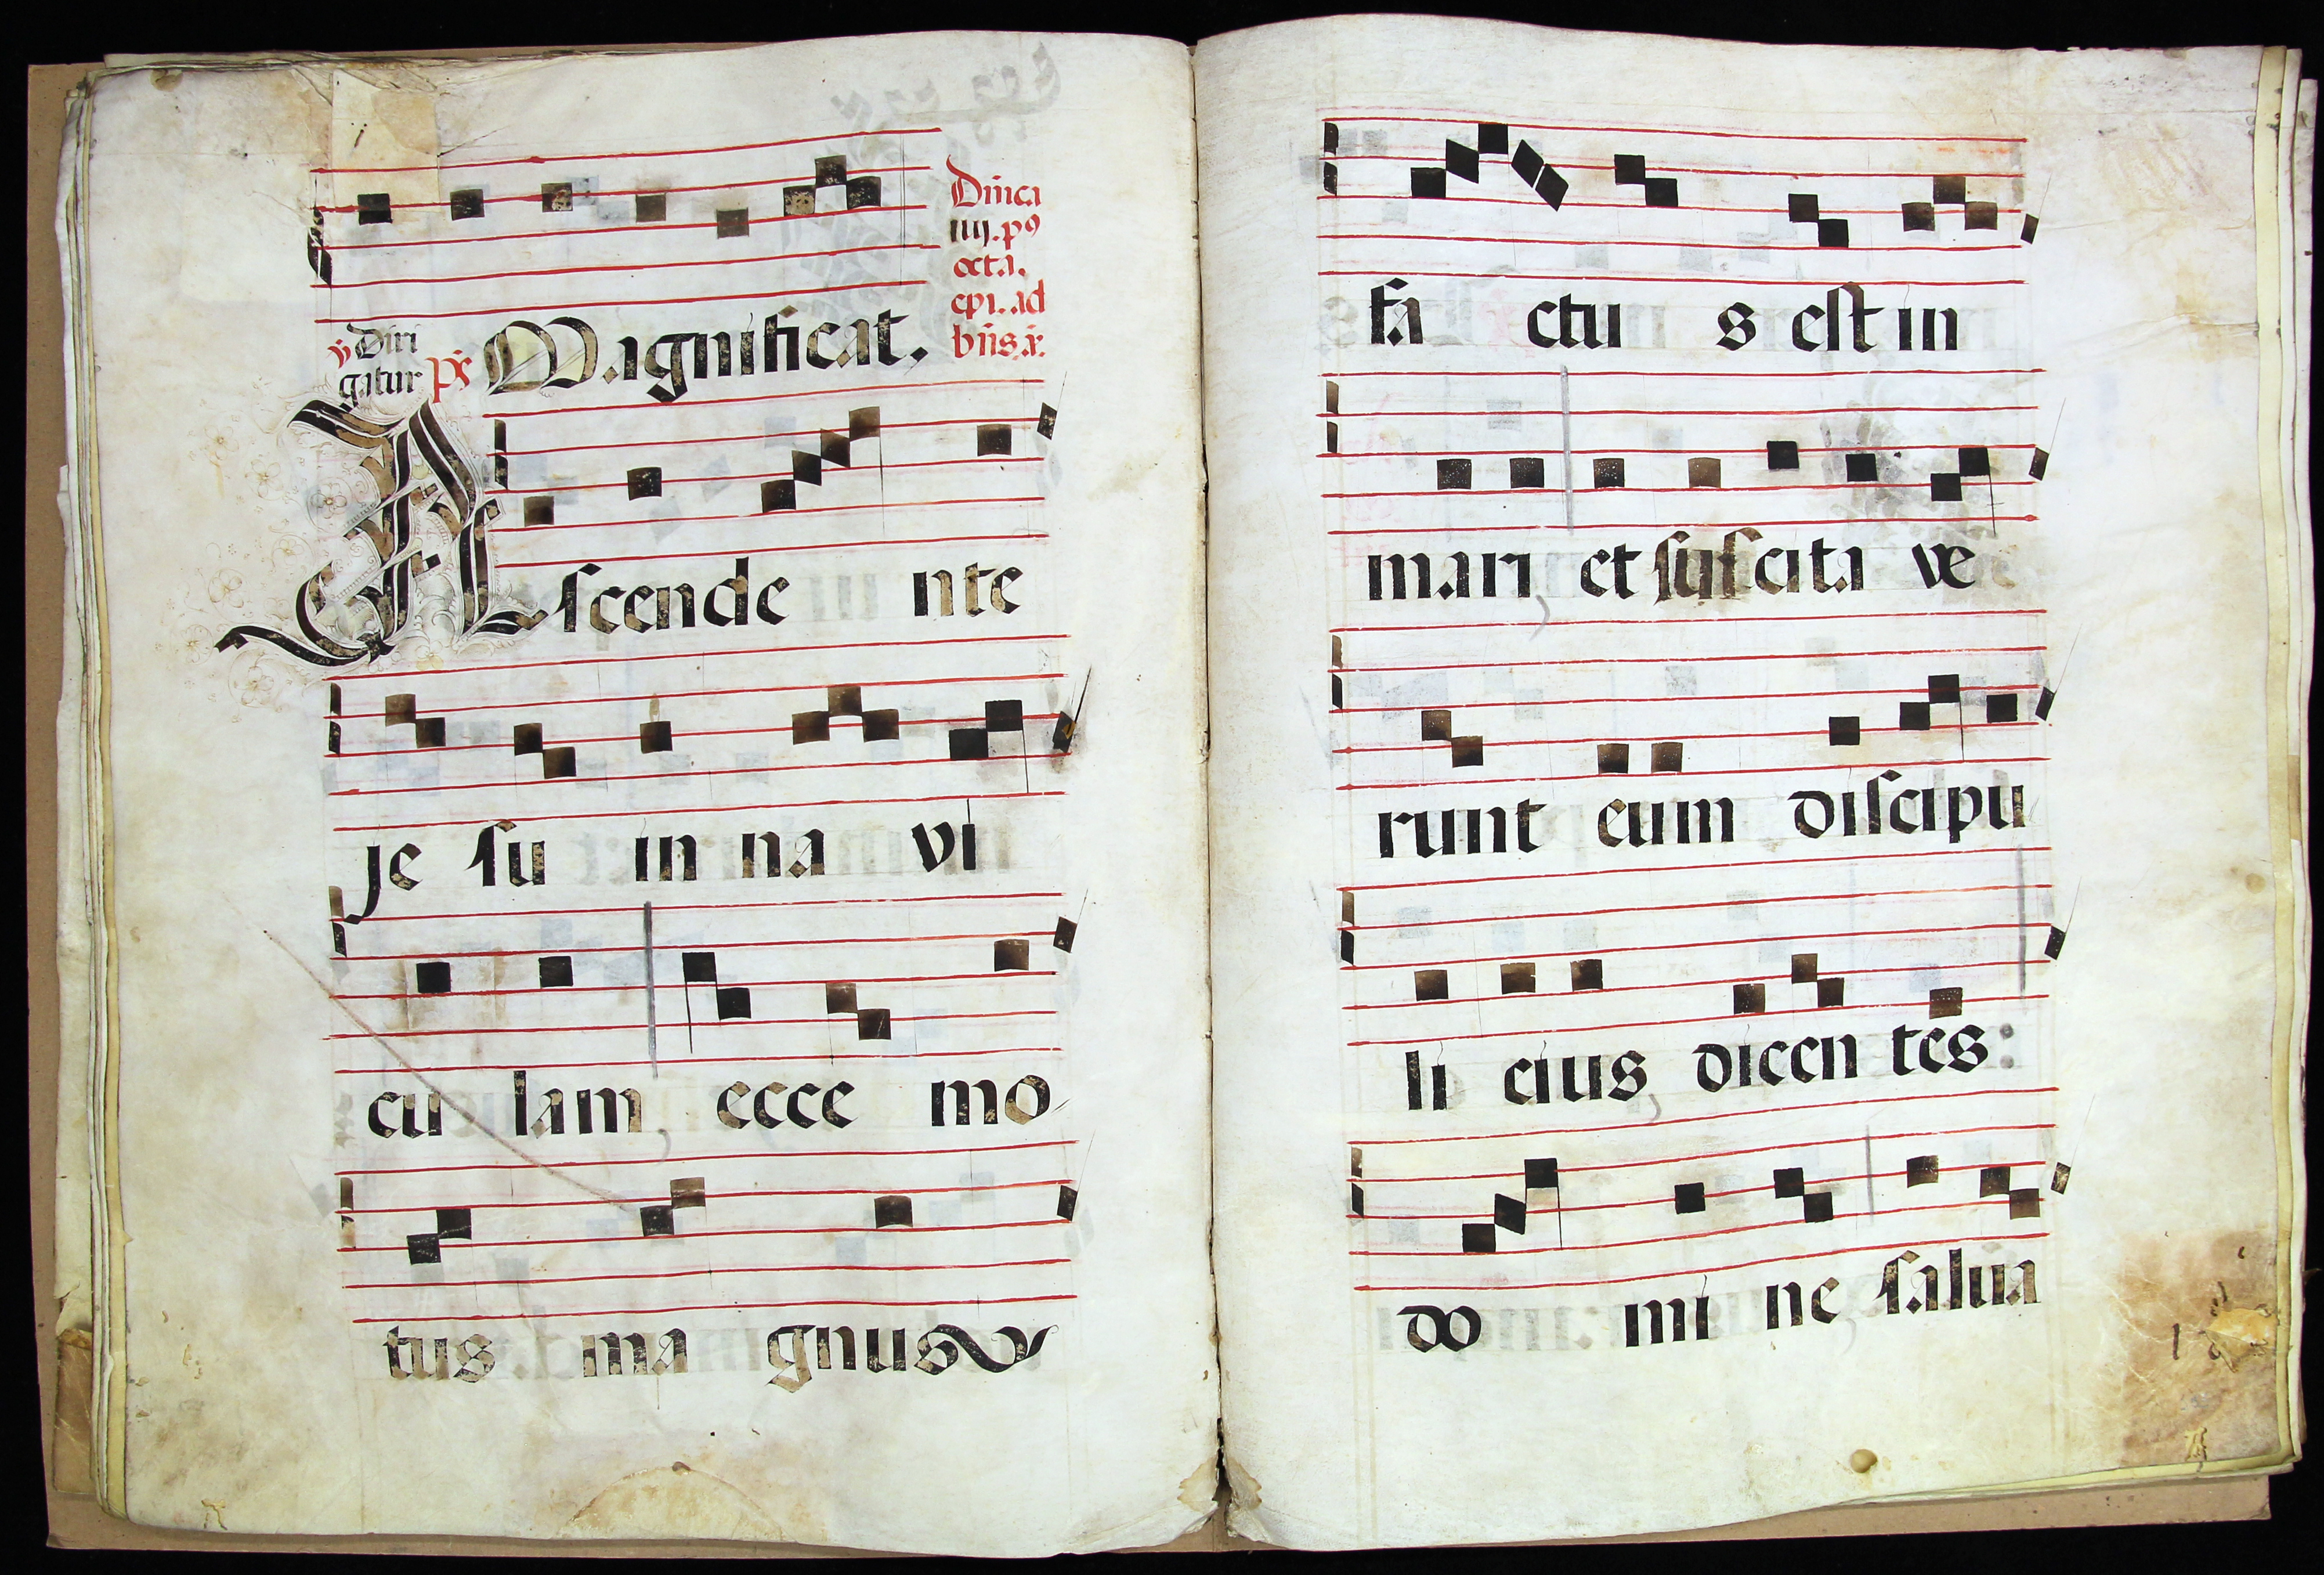 Dñica
iiij. pꝰ
octa.
epi. ad
bñs. a.
℣ Diri
gatur ps Magnificat.
Ascende nte
je su in na vi
cu lam ecce mo
tus ma gnus
fa ctu s est in
mari et suscita ve
runt eum discipu
li eius dicen tes:
do mi ne salua